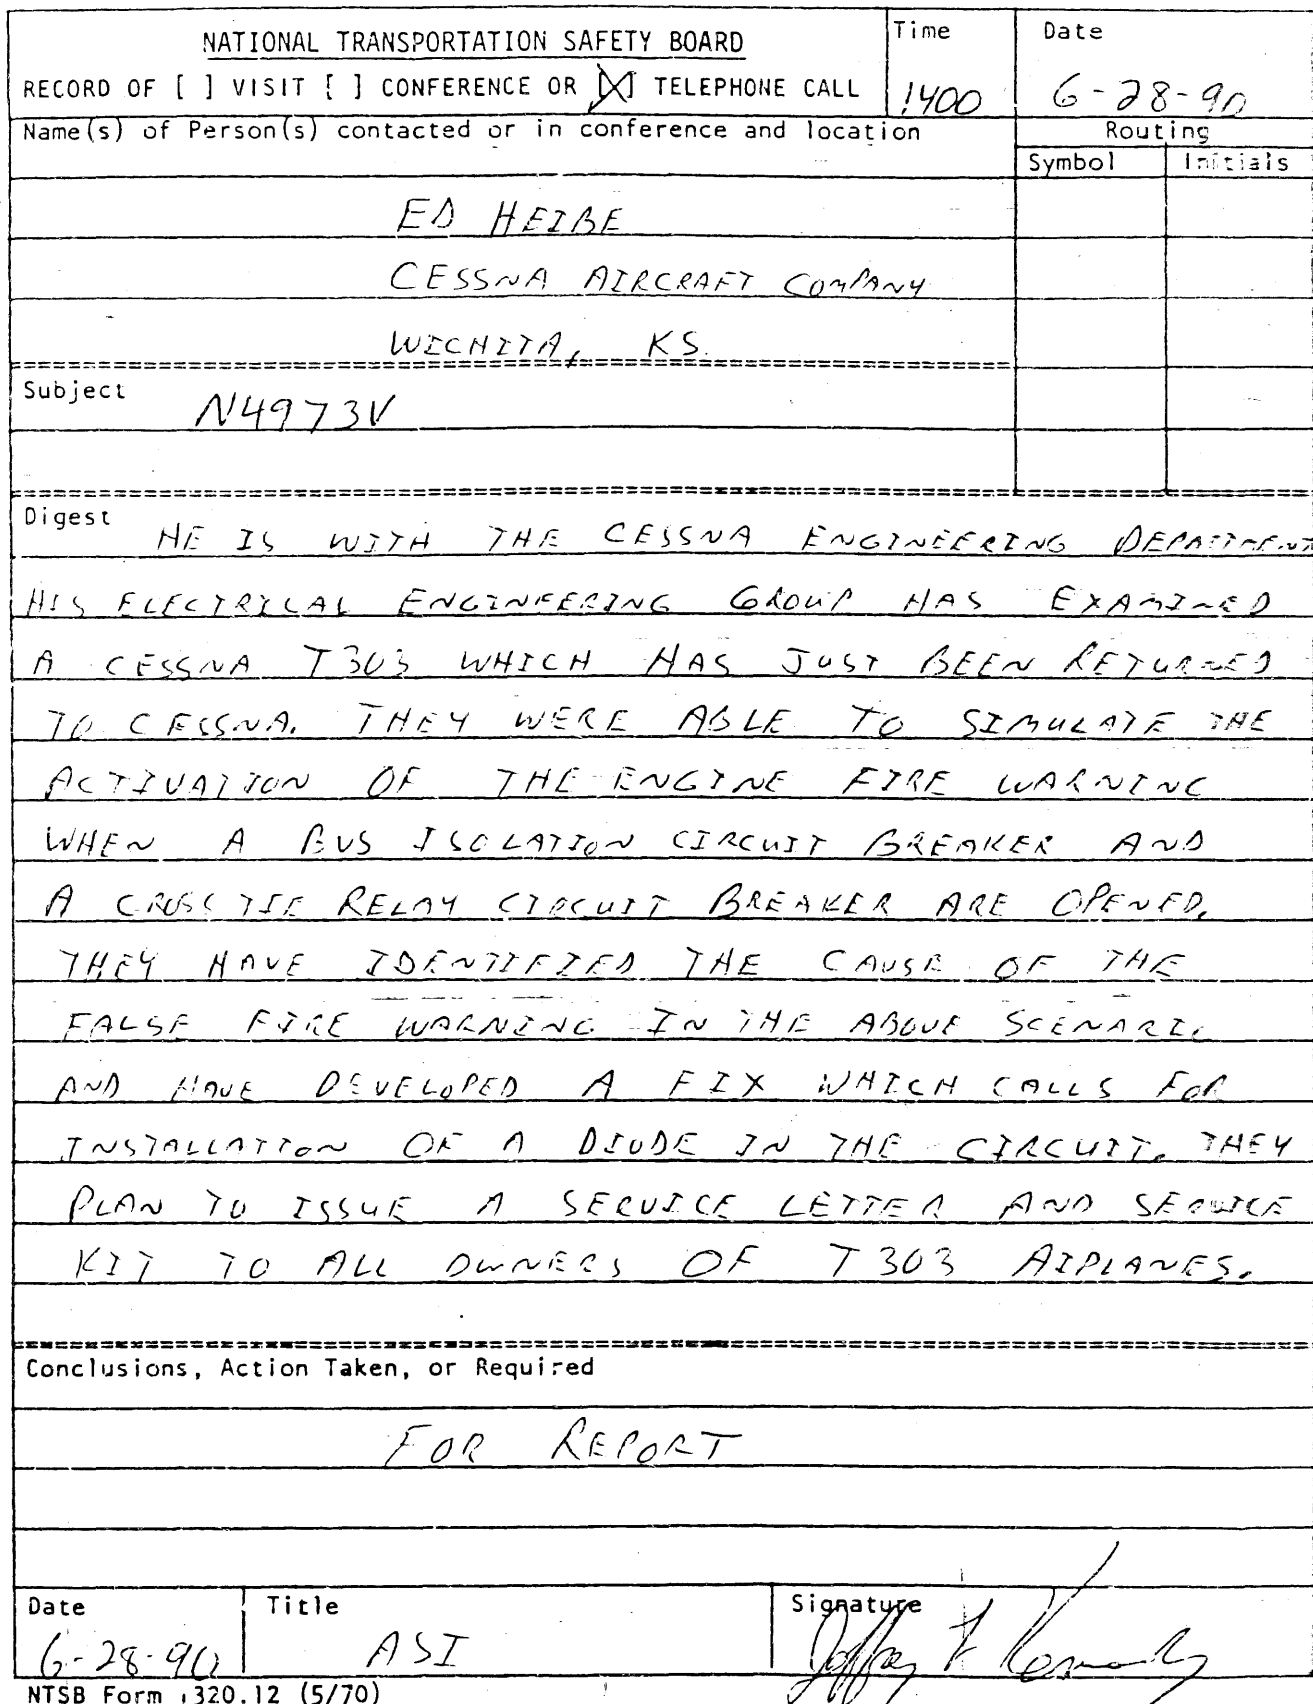 NATIONAL TRANSPORTATION SAFETY BOARD
RECORD OF [ ] VISIT [ ] CONFERENCE OR [X] TELEPHONE CALL
Time
1400
Date
6-28-90
Name(s) of Person(s) contacted or in conference and location
Routing
Symbol
Initials
ED HEIBE
CESSNA AIRCRAFT COMPANY
WICHITA, KS.
Subject
N4973V
Digest
HE IS WITH THE CESSNA ENGINEERING DEPARTMENT
HIS ELECTRICAL ENGINEERING GROUP HAS EXAMINED
A CESSNA T303 WHICH HAS JUST BEEN RETURNED
TO CESSNA. THEY WERE ABLE TO SIMULATE THE
ACTIVATION OF THE ENGINE FIRE WARNING
WHEN A BUS ISOLATION CIRCUIT BREAKER AND
A CROSS TIE RELAY CIRCUIT BREAKER ARE OPENED.
THEY HAVE IDENTIFIED THE CAUSE OF THE
FALSE FIRE WARNING IN THE ABOVE SCENARIO
AND HAVE DEVELOPED A FIX WHICH CALLS FOR
INSTALLATION OF A DIODE IN THE CIRCUIT. THEY
PLAN TO ISSUE A SERVICE LETTER AND SERVICE
KIT TO ALL OWNERS OF T303 AIPLANES.
Conclusions, Action Taken, or Required
FOR REPORT
Date
6-28-90
Title
ASI
Signature
Jeffrey F Kennedy
NTSB Form 1320.12 (5/70)